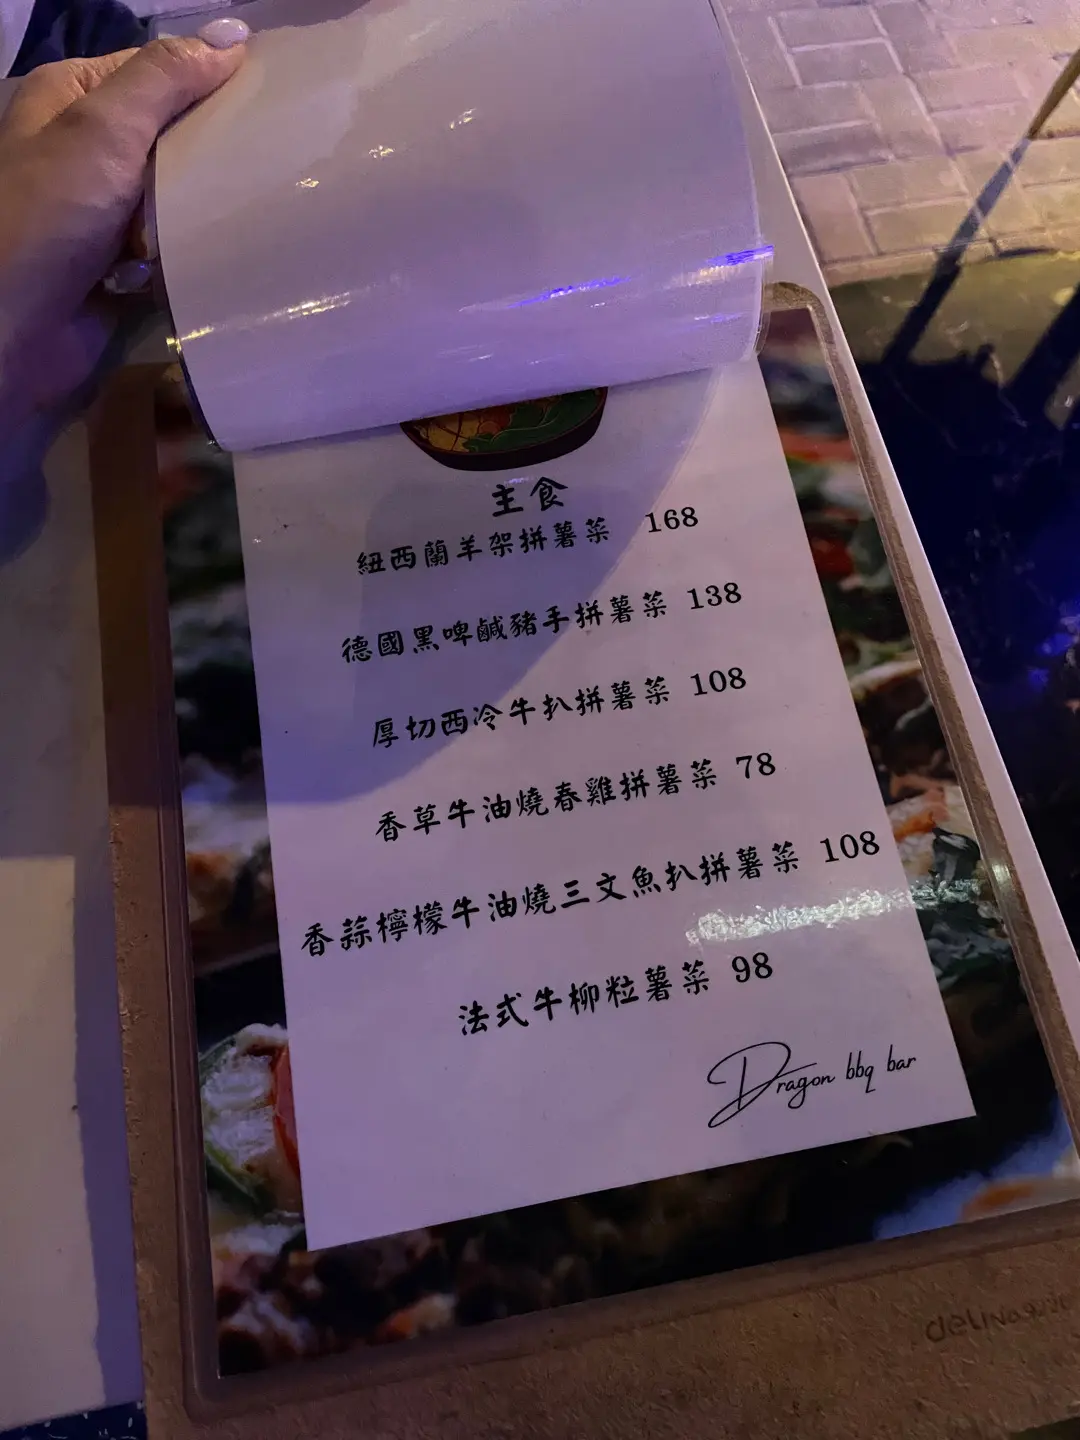 主食
紐西蘭羊架拼薯菜 168
德國黑啤鹹豬手拼薯菜 138
厚切西冷牛扒拼薯菜 108
香草牛油燒春雞拼薯菜 78
香蒜檸檬牛油燒三文魚扒拼薯菜 108
法式牛柳粒薯菜 98
Dragon bbq bar
deli